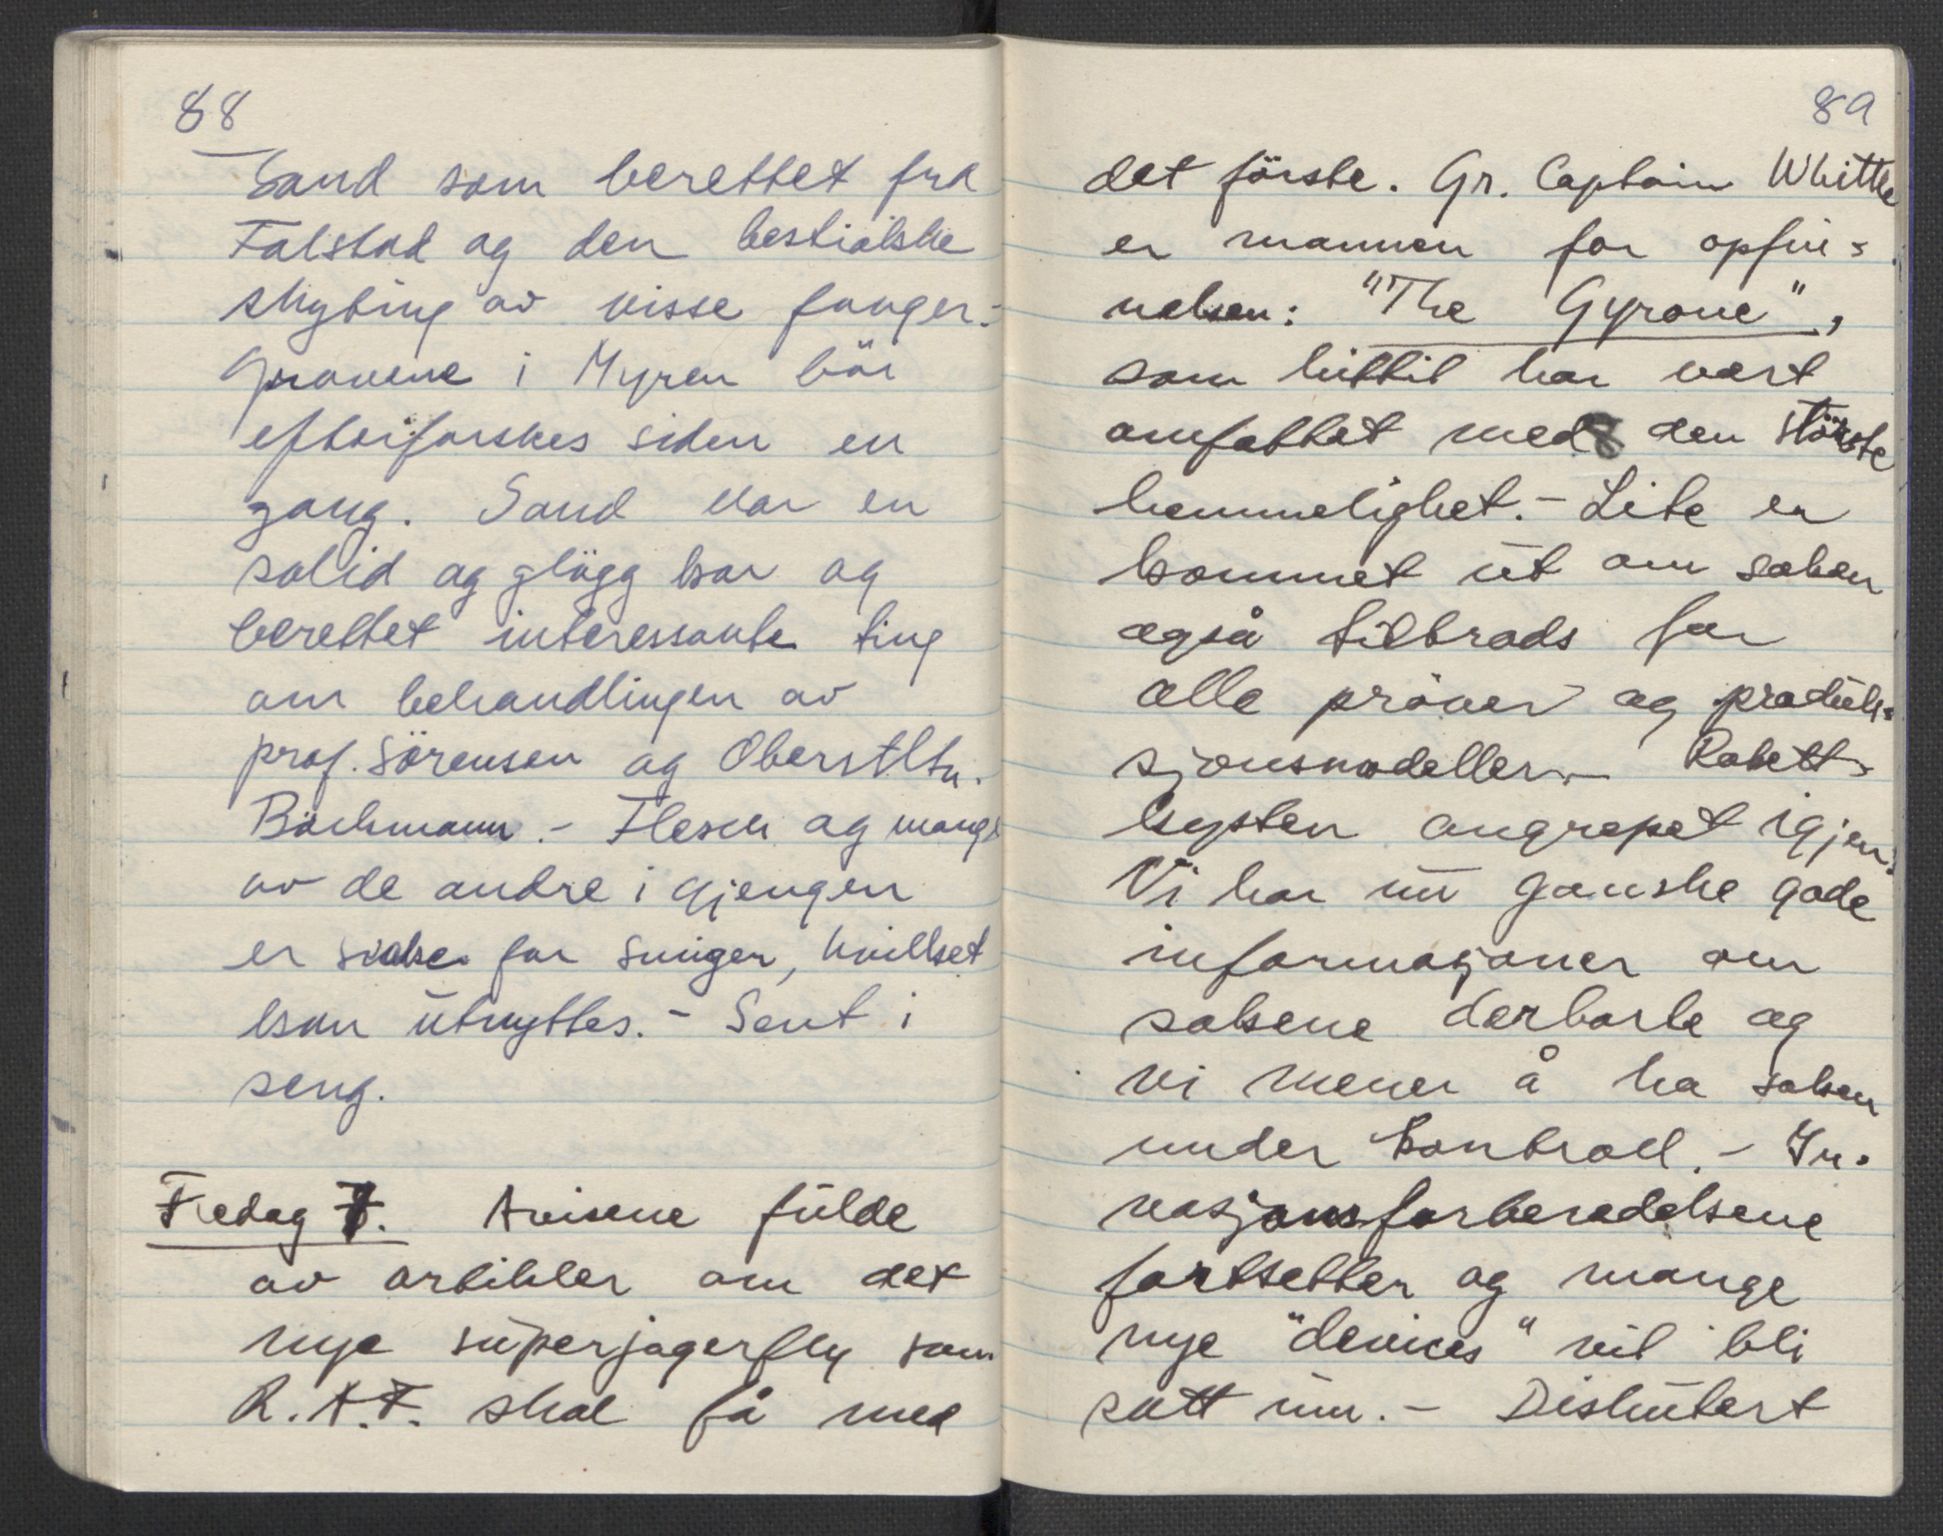 88
Sand som berettet fra
Falstad og den bestialske
skyting av visse fanger.-
Gravene i Myren bör
efterforskes siden en
gang. Sand var en
solid og glögg kar og
berettet interessante ting
om behandlingen av
prof. Sörensen og Oberstltn.
Bachmann. - Flesch og mange
av de andre i gjengen
er svake for penger, hvilket
kan utnyttes. - Sent i
seng.
Fredag 7. Avisene fulde
av artikler om det
nye superjagerfly som
R.A.F. skal få med
89
det förste. Gr. Captain Whittle
er mannen for opfin=
nelsen: "The Gyrone",
som hittil har vært
omfattet med den störste
hemmelighet. - Lite er
kommet ut om saken
også tiltrods for
alle pröver og produk=
sjonsmodeller. - Rakett=
kysten angrepet igjen.
Vi har nu ganske gode
informasjoner om
sakene derborte og
vi mener å ha saken
under kontroll. - In=
vasjonsforberedelsene
fortsetter og mange
nye "devices" vil bli
satt inn. - Diskutert